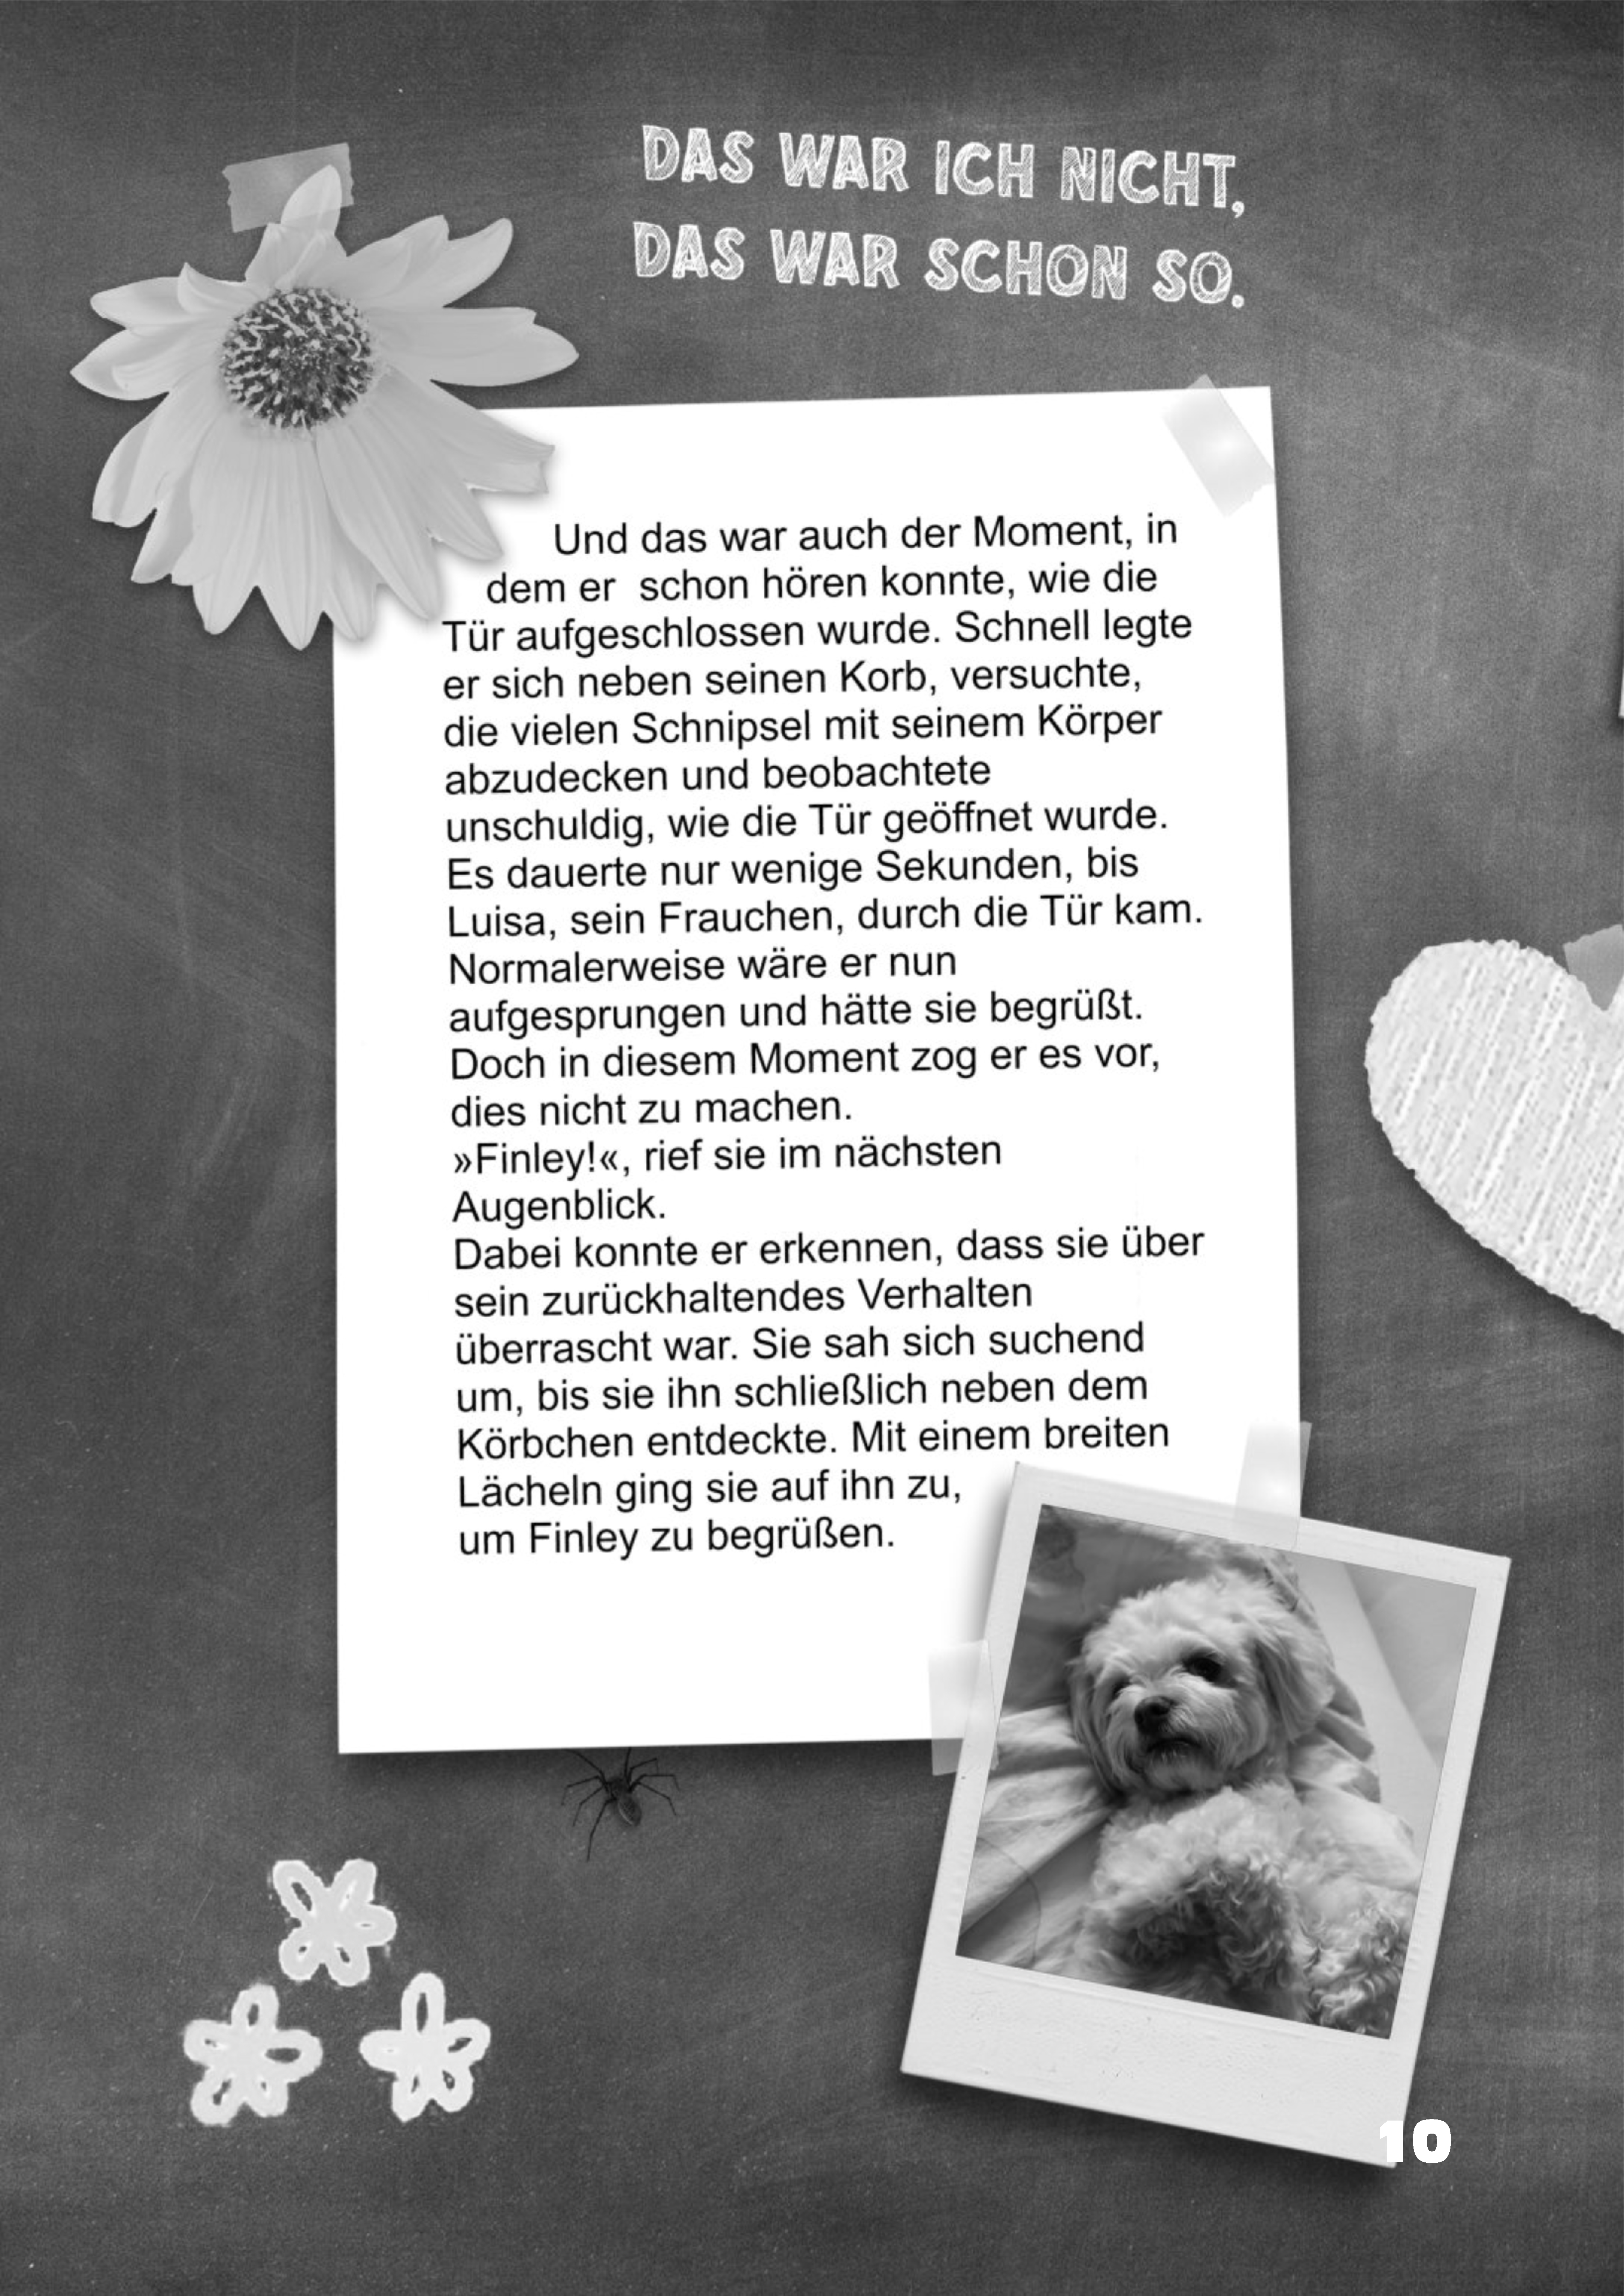 DAS WAR ICH NICHT,
DAS WAR SCHON SO.
Und das war auch der Moment, in
dem er schon hören konnte, wie die
Tür aufgeschlossen wurde. Schnell legte
er sich neben seinen Korb, versuchte,
die vielen Schnipsel mit seinem Körper
abzudecken und beobachtete
unschuldig, wie die Tür geöffnet wurde.
Es dauerte nur wenige Sekunden, bis
Luisa, sein Frauchen, durch die Tür kam.
Normalerweise wäre er nun
aufgesprungen und hätte sie begrüßt.
Doch in diesem Moment zog er es vor,
dies nicht zu machen.
»Finley!«, rief sie im nächsten
Augenblick.
Dabei konnte er erkennen, dass sie über
sein zurückhaltendes Verhalten
überrascht war. Sie sah sich suchend
um, bis sie ihn schließlich neben dem
Körbchen entdeckte. Mit einem breiten
Lächeln ging sie auf ihn zu,
um Finley zu begrüßen.
10